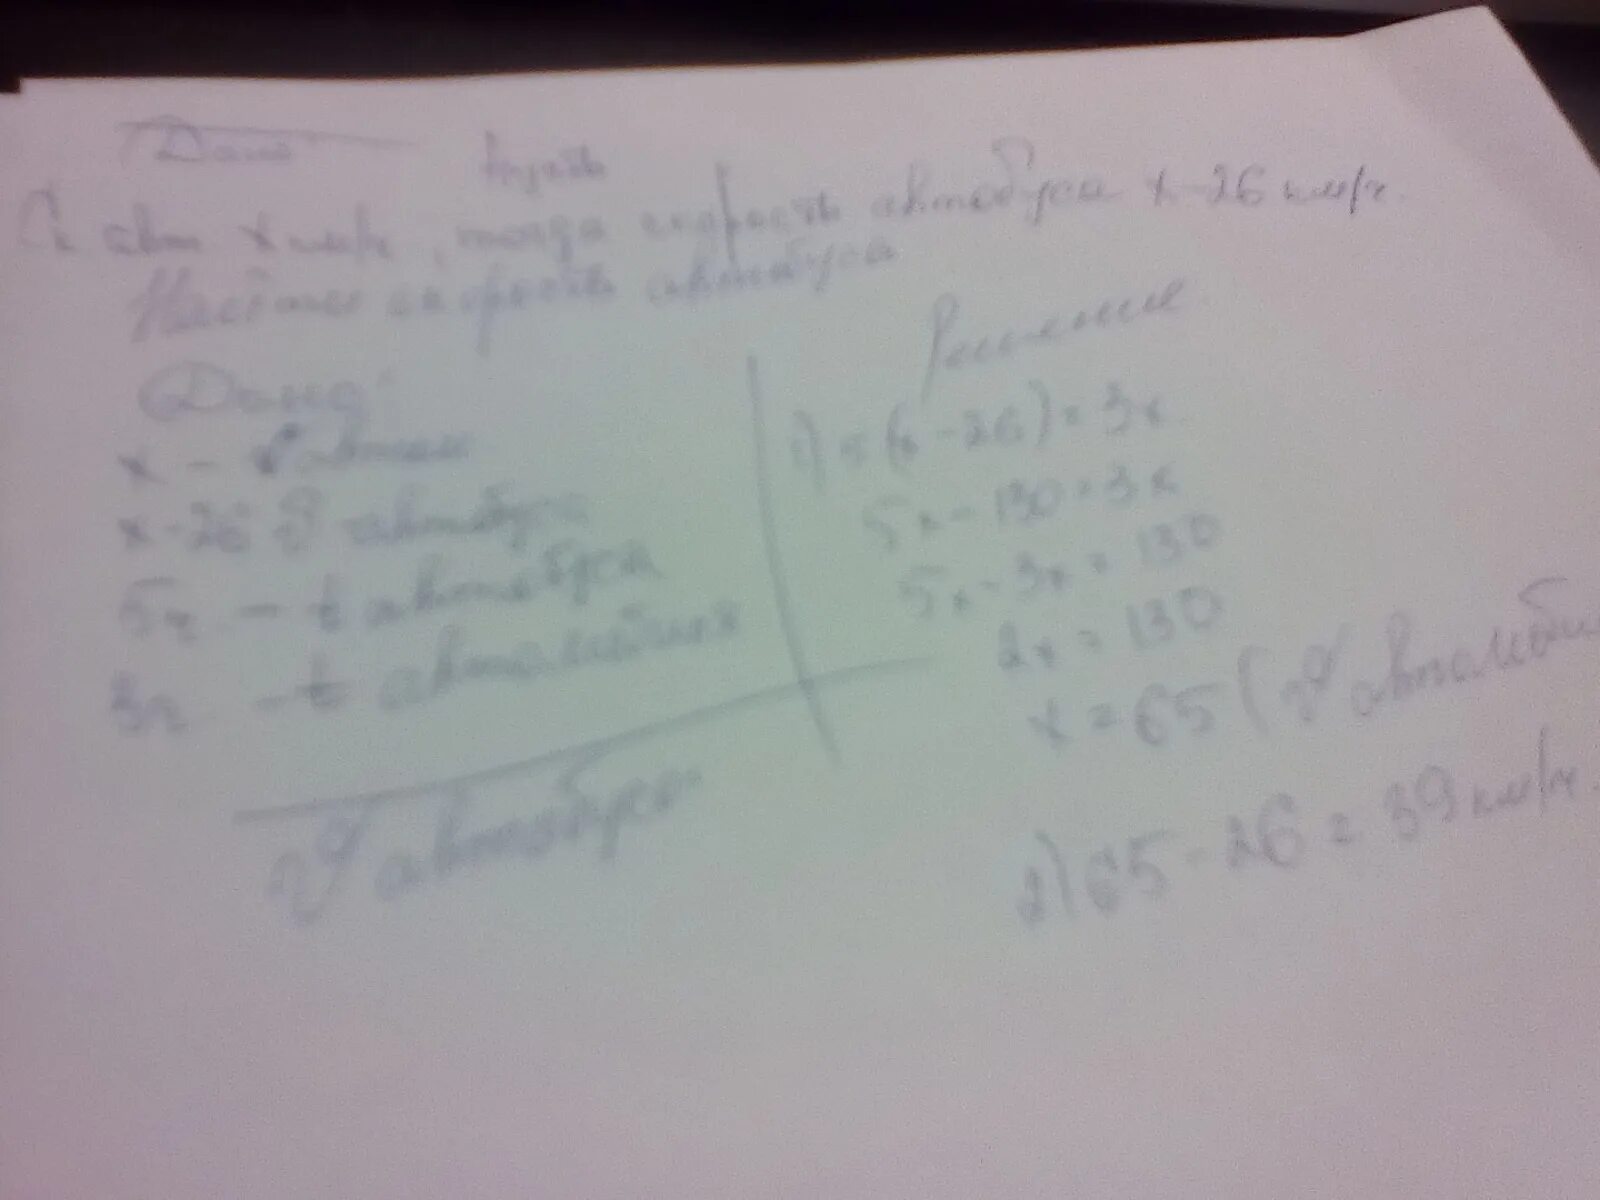 Дано Пусть
авт x км/ч, тогда скорость автобуса x-26 км/ч.
скорость автобуса
Дано
x -
x-26 автобуса
5ч - t автобуса
3ч - t автомобиля
V автобуса
Решение
1) 5(x-26)=3x
5x-130=3x
5x-3x=130
2x=130
x=65 (V автомобил
2) 65-26=39 км/ч.